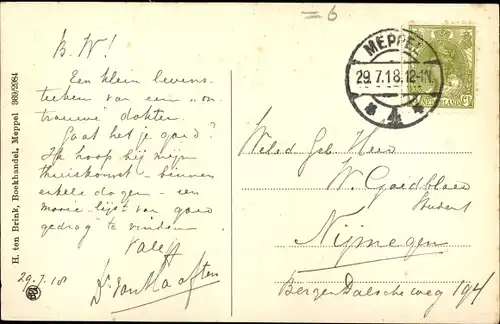 = 6
B. W!
Een klein levens-
teeken van een "on-
trouwe dokter.
Gaat het je goed?
Ik hoop bij mijn
thuiskomst - binnen
enkele dagen - een
mooie "lijst van goed
gedrag" te vinden
Vale!!
29.7.18 Dr. Van Haaften
H. ten Brink, Boekhandel, Meppel 369/2084
MEPPEL
29.7.18.12-1N.
4
NEDERLAND
Weled. Geb. Heer
W. Goedbloed
Student
Nijmegen
Berg en Dalsche weg 194